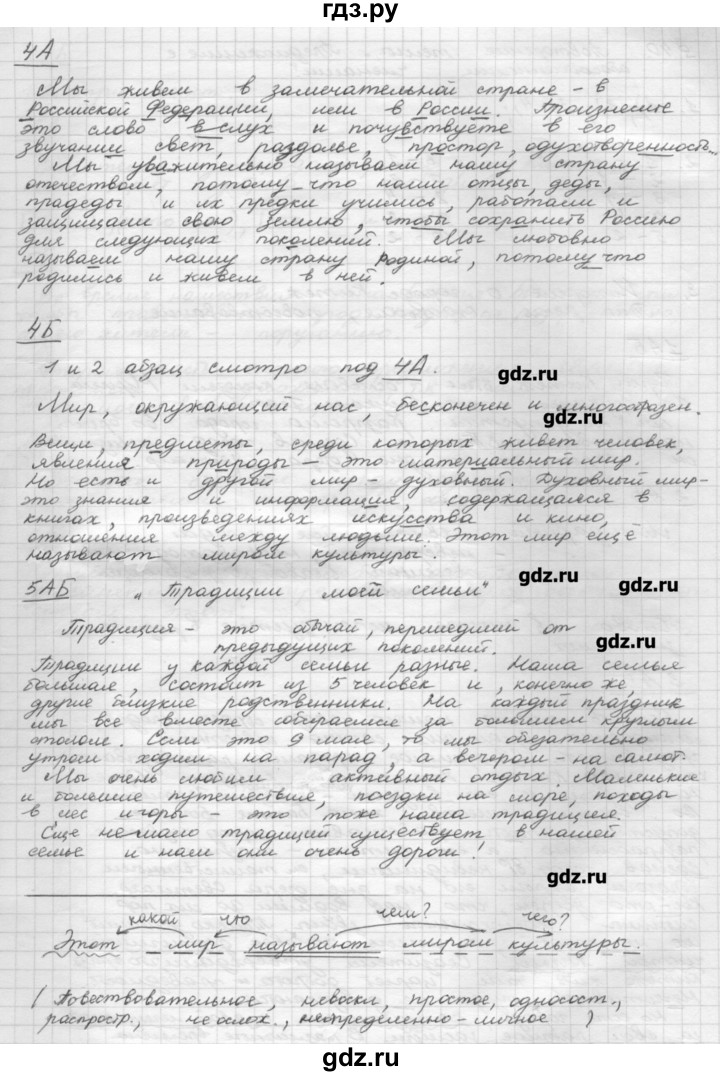 гдз.ру
4А
Мы живем в замечательной стране - в
Российской Федерации, или в России. Произнесите
это слово вслух и почувствуете в его
звучании свет, раздолье, простор, одухотворенность...
Мы уважительно называем нашу страну
отечеством, потому-что наши отцы, деды,
прадеды и их предки учились, работали и
защищали свою землю, чтобы сохранить Россию
для следующих поколений. Мы любовно
называем нашу страну Родиной, потому что
родились и живем в ней.
4Б
1 и 2 абзац смотро под 4А.
gdz.ru
Мир, окружающий нас, бесконечен и многообразен.
gdz.ru
Вещи, предметы, среди которых живет человек,
явления природы - это материальный мир.
Но есть и другой мир - духовный. Духовный мир -
это знания и информация, содержащаяся в
книгах, произведениях искусства и кино,
отношения между людьми. Этот мир ещё
называют миром культуры.
gdz.ru
gdz.ru
5АБ „Традиции моей семьи"
Традиция - это обычай, перешедший от
предыдущих поколений.
gdz.ru
Традиции у каждой семьи разные. Наша семья
большая, состоит из 5 человек и, конечно же,
другие близкие родственники. На каждый праздник
мы все вместе собираемся за большим круглым
столом. Если это 9 мая, то мы обязательно
утром ходим на парад, а вечером - на салют.
Мы очень любим активный отдых. Маленькие
и большие путешествия, поездки на море, походы
в лес и горы - это тоже наша традиция.
Еще не мало традиций существует в нашей
семье и нам они очень дороги!
gdz.ru
какой что чем? чего?
Этот мир называют миром культуры.
(Повествовательное, невоскл, простое, односост.,
распростр., не ослож., неопределенно-личное)
gdz.ru